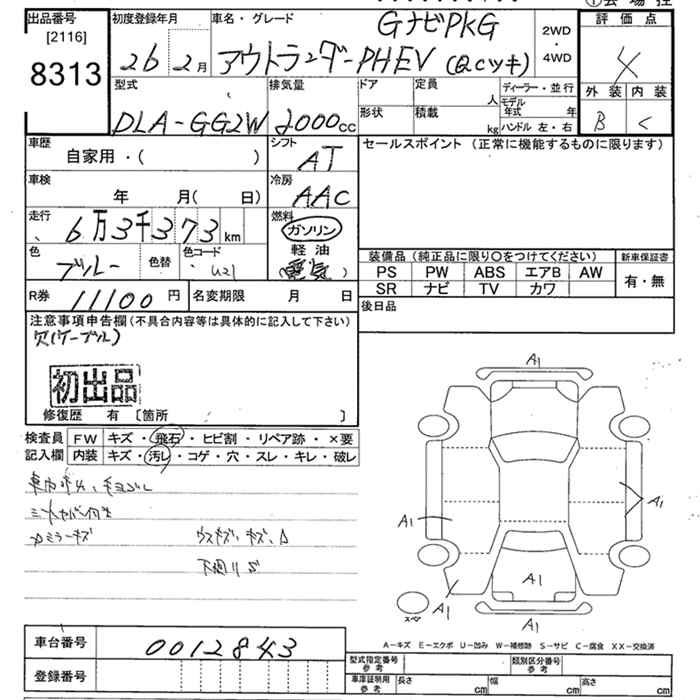 出品番号 初度登録年月 車名・グレード 評価点
[2116]
8313
26年 2月 アウトランダーPHEV GナビPKG (Qcツキ) 2WD・4WD 4
型式 排気量 ドア 定員 人 ディーラー・並行 外装 内装
DLA-GG2W 2000cc 形状 積載 kg モデル年式 年 ハンドル 左・右 B C
車歴 自家用・( ) シフト AT セールスポイント (正常に機能するものに限ります)
車検 年 月( 日) 冷房 AAC
走行 6万3千373km 燃料 ガソリン
色 ブルー 色替 色コード U21 軽油 (電気)
装備品(純正品に限り○をつけてください) 新車保証書
PS PW ABS エアB AW 有・無
SR ナビ TV カワ
R券 11100円 名変期限 月 日 後日品
注意事項申告欄(不具合内容等は具体的に記入して下さい)
欠(ケーブル)
初出品
修復歴 有 〔箇所 〕
検査員 FW キズ・飛石・ヒビ割・リペア跡・×要
記入欄 内装 キズ・汚レ・コゲ・穴・スレ・キレ・破レ
ウスキズ、キズ、凸
A1
A1
A1
A1
A1
A1
スペア
A-キズ E-エクボ U-凹み W-補修跡 S-サビ C-腐食 XX-交換済
車台番号 0012843
型式指定番号 参考 類別区分番号 参考
登録番号 車庫証明用 参考 長さ cm 幅 cm 高さ cm